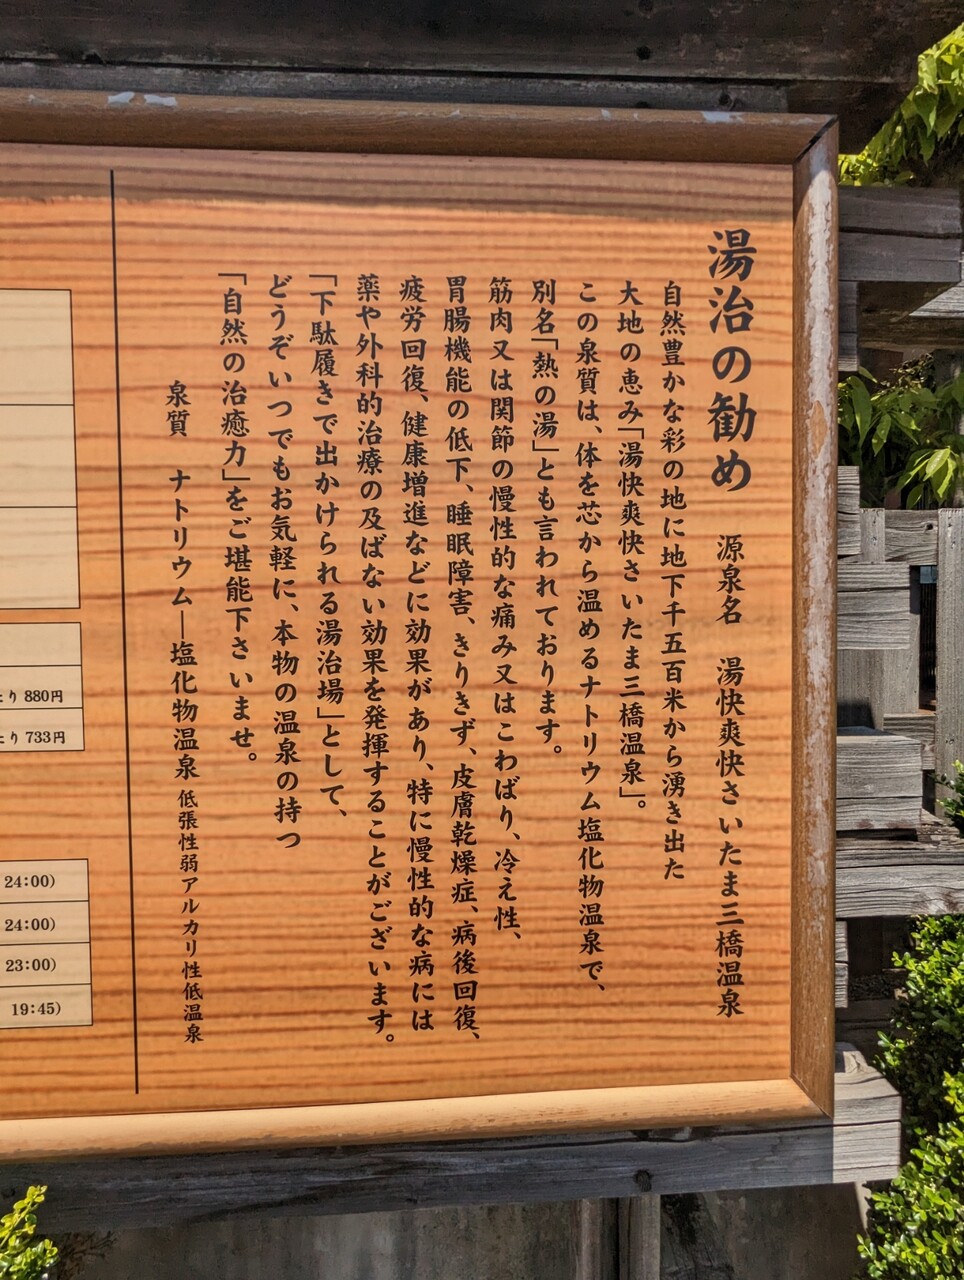 湯治の勧め　源泉名　湯快爽快さいたま三橋温泉
自然豊かな彩の地に地下千五百米から湧き出た
大地の恵み「湯快爽快さいたま三橋温泉」。
この泉質は、体を芯から温めるナトリウム塩化物温泉で、
別名「熱の湯」とも言われております。
筋肉又は関節の慢性的な痛み又はこわばり、冷え性、
胃腸機能の低下、睡眠障害、きりきず、皮膚乾燥症、病後回復、
疲労回復、健康増進などに効果があり、特に慢性的な病には
薬や外科的治療の及ばない効果を発揮することがございます。
「下駄履きで出かけられる湯治場」として、
どうぞいつでもお気軽に、本物の温泉の持つ
「自然の治癒力」をご堪能下さいませ。
泉質　ナトリウム―塩化物温泉 低張性弱アルカリ性低温泉
り 880円
り 733円
24:00)
24:00)
23:00)
19:45)